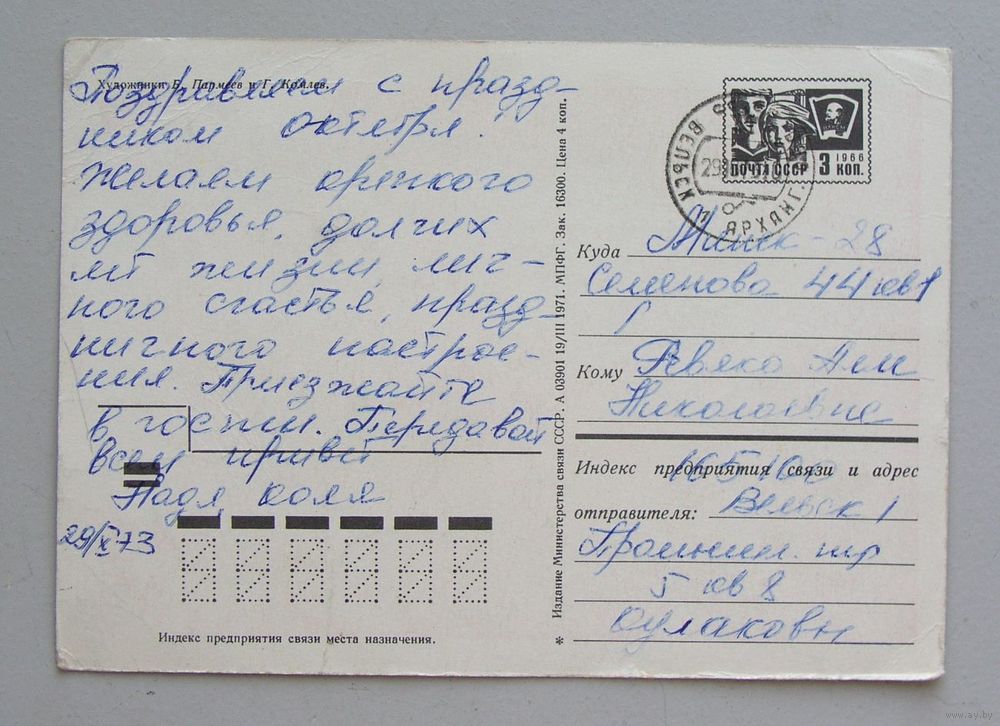 Художники Б. Пармеев и Г. Комлев.
Поздравляем с празд-
ником октября.
желаем крепкого
здоровья, долгих
лет жизни, лич-
ного счастья, празд-
ничного настрое-
ния. Приезжайте
в гости. Передавай
всем привет
Надя, Коля
29/X 73
Индекс предприятия связи места назначения.
Издание Министерства связи СССР. А 03901 19/III 1971. МПФГ. Зак. 16300. Цена 4 коп.
ПОЧТА СССР
1966
3 КОП.
ВЕЛЬСК 1 АРХАНГ.
29
Куда Минск-28
Семенова 44 кв 1
Кому
Николаевне
Индекс предприятия связи и адрес
165100
отправителя: Вельск 1
5 кв 8
Кулаковы
www.ay.by